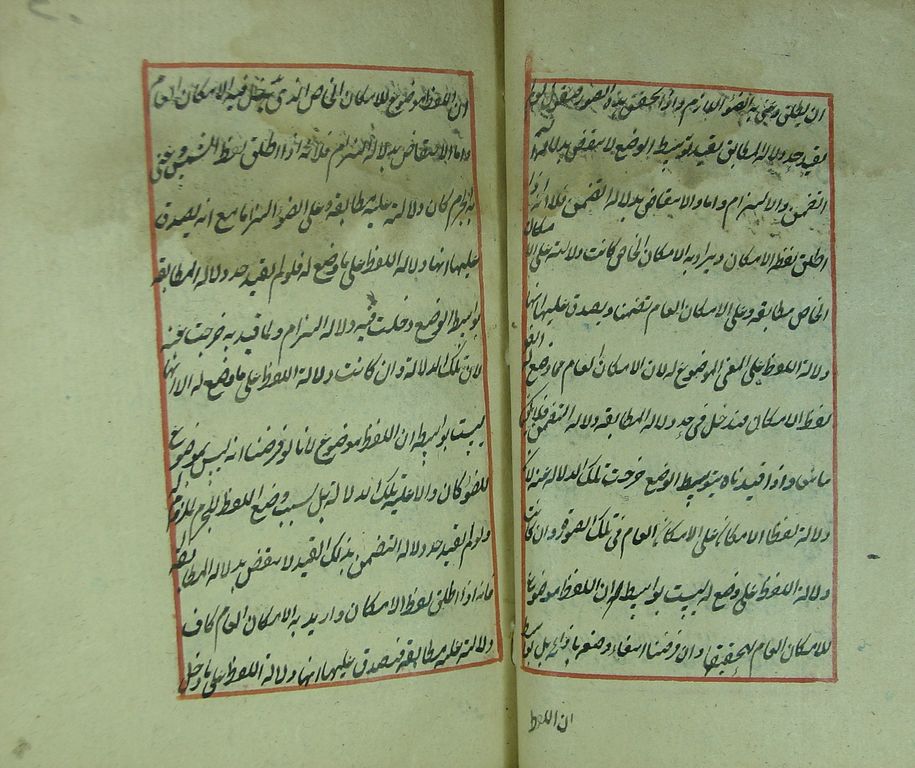 ان يطلق ويعنى به الضوء اللازم واذا تحقق هذه الصور فنقول لو لم
يقيد حد دلالة المطابقة بقيد توسيط الوضع لانتقض بدلالة
التضمن والالتزام واما الانتقاض بدلالة التضمن فلانه اذا
اطلق لفظ الامكان ويراد به الامكان الخاص كانت دلالته على الامكان
الخاص مطابقة وعلى الامكان العام تضمنا ويصدق عليها انها
دلالة اللفظ على المعنى الموضوع له لان الامكان العام مما وضع له
لفظ الامكان فيدخل في حد دلالة المطابقة دلالة التضمن فلا يكون
مانعا واذا قيدناه بتوسيط الوضع خرجت تلك الدلالة عنه لان
دلالة لفظ الامكان على الامكان العام في تلك الصورة وان كانت
دلالة اللفظ على وضع له ليست بواسطة ان اللفظ موضوع
للامكان العام لتحققها وان فرضنا انتفاء وضعه بازائه بل بواسطة
ان اللفظ
ان اللفظ موضوع للامكان الخاص الذي يدخل فيه الامكان العام
واما الانتقاض بدلالة الالتزام فلانه اذا اطلق لفظ الشمس وعنى
به الجرم كان دلالته عليه مطابقة وعلى الضوء التزاما مع انه يصدق
عليها انها دلالة اللفظ على ما وضع له فلو لم يقيد حد دلالة المطابقة
بتوسيط الوضع دخلت فيه دلالة التزام ولما قيد به خرجت عنه
لان تلك الدلالة وان كانت دلالة اللفظ على ما وضع له الا انها
ليست بواسطة ان اللفظ موضوع له لانا لو فرضنا انه ليس بموضوع
للضوء كان دالا عليه بتلك الدلالة بل بسبب وضع اللفظ للجرم الملزوم له
ولو لم يقيد حد دلالة التضمن بذلك القيد لانتقض بدلالة المطابقة
فانه اذا اطلق لفظ الامكان واريد به الامكان العام كان
دلالته عليه مطابقة فيصدق عليها انها دلالة اللفظ على ما دخل